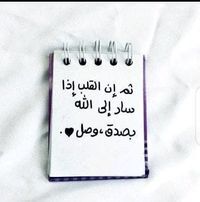 ثم إن القلب إذا
سار إلى الله
بصدق، وصل ♥.